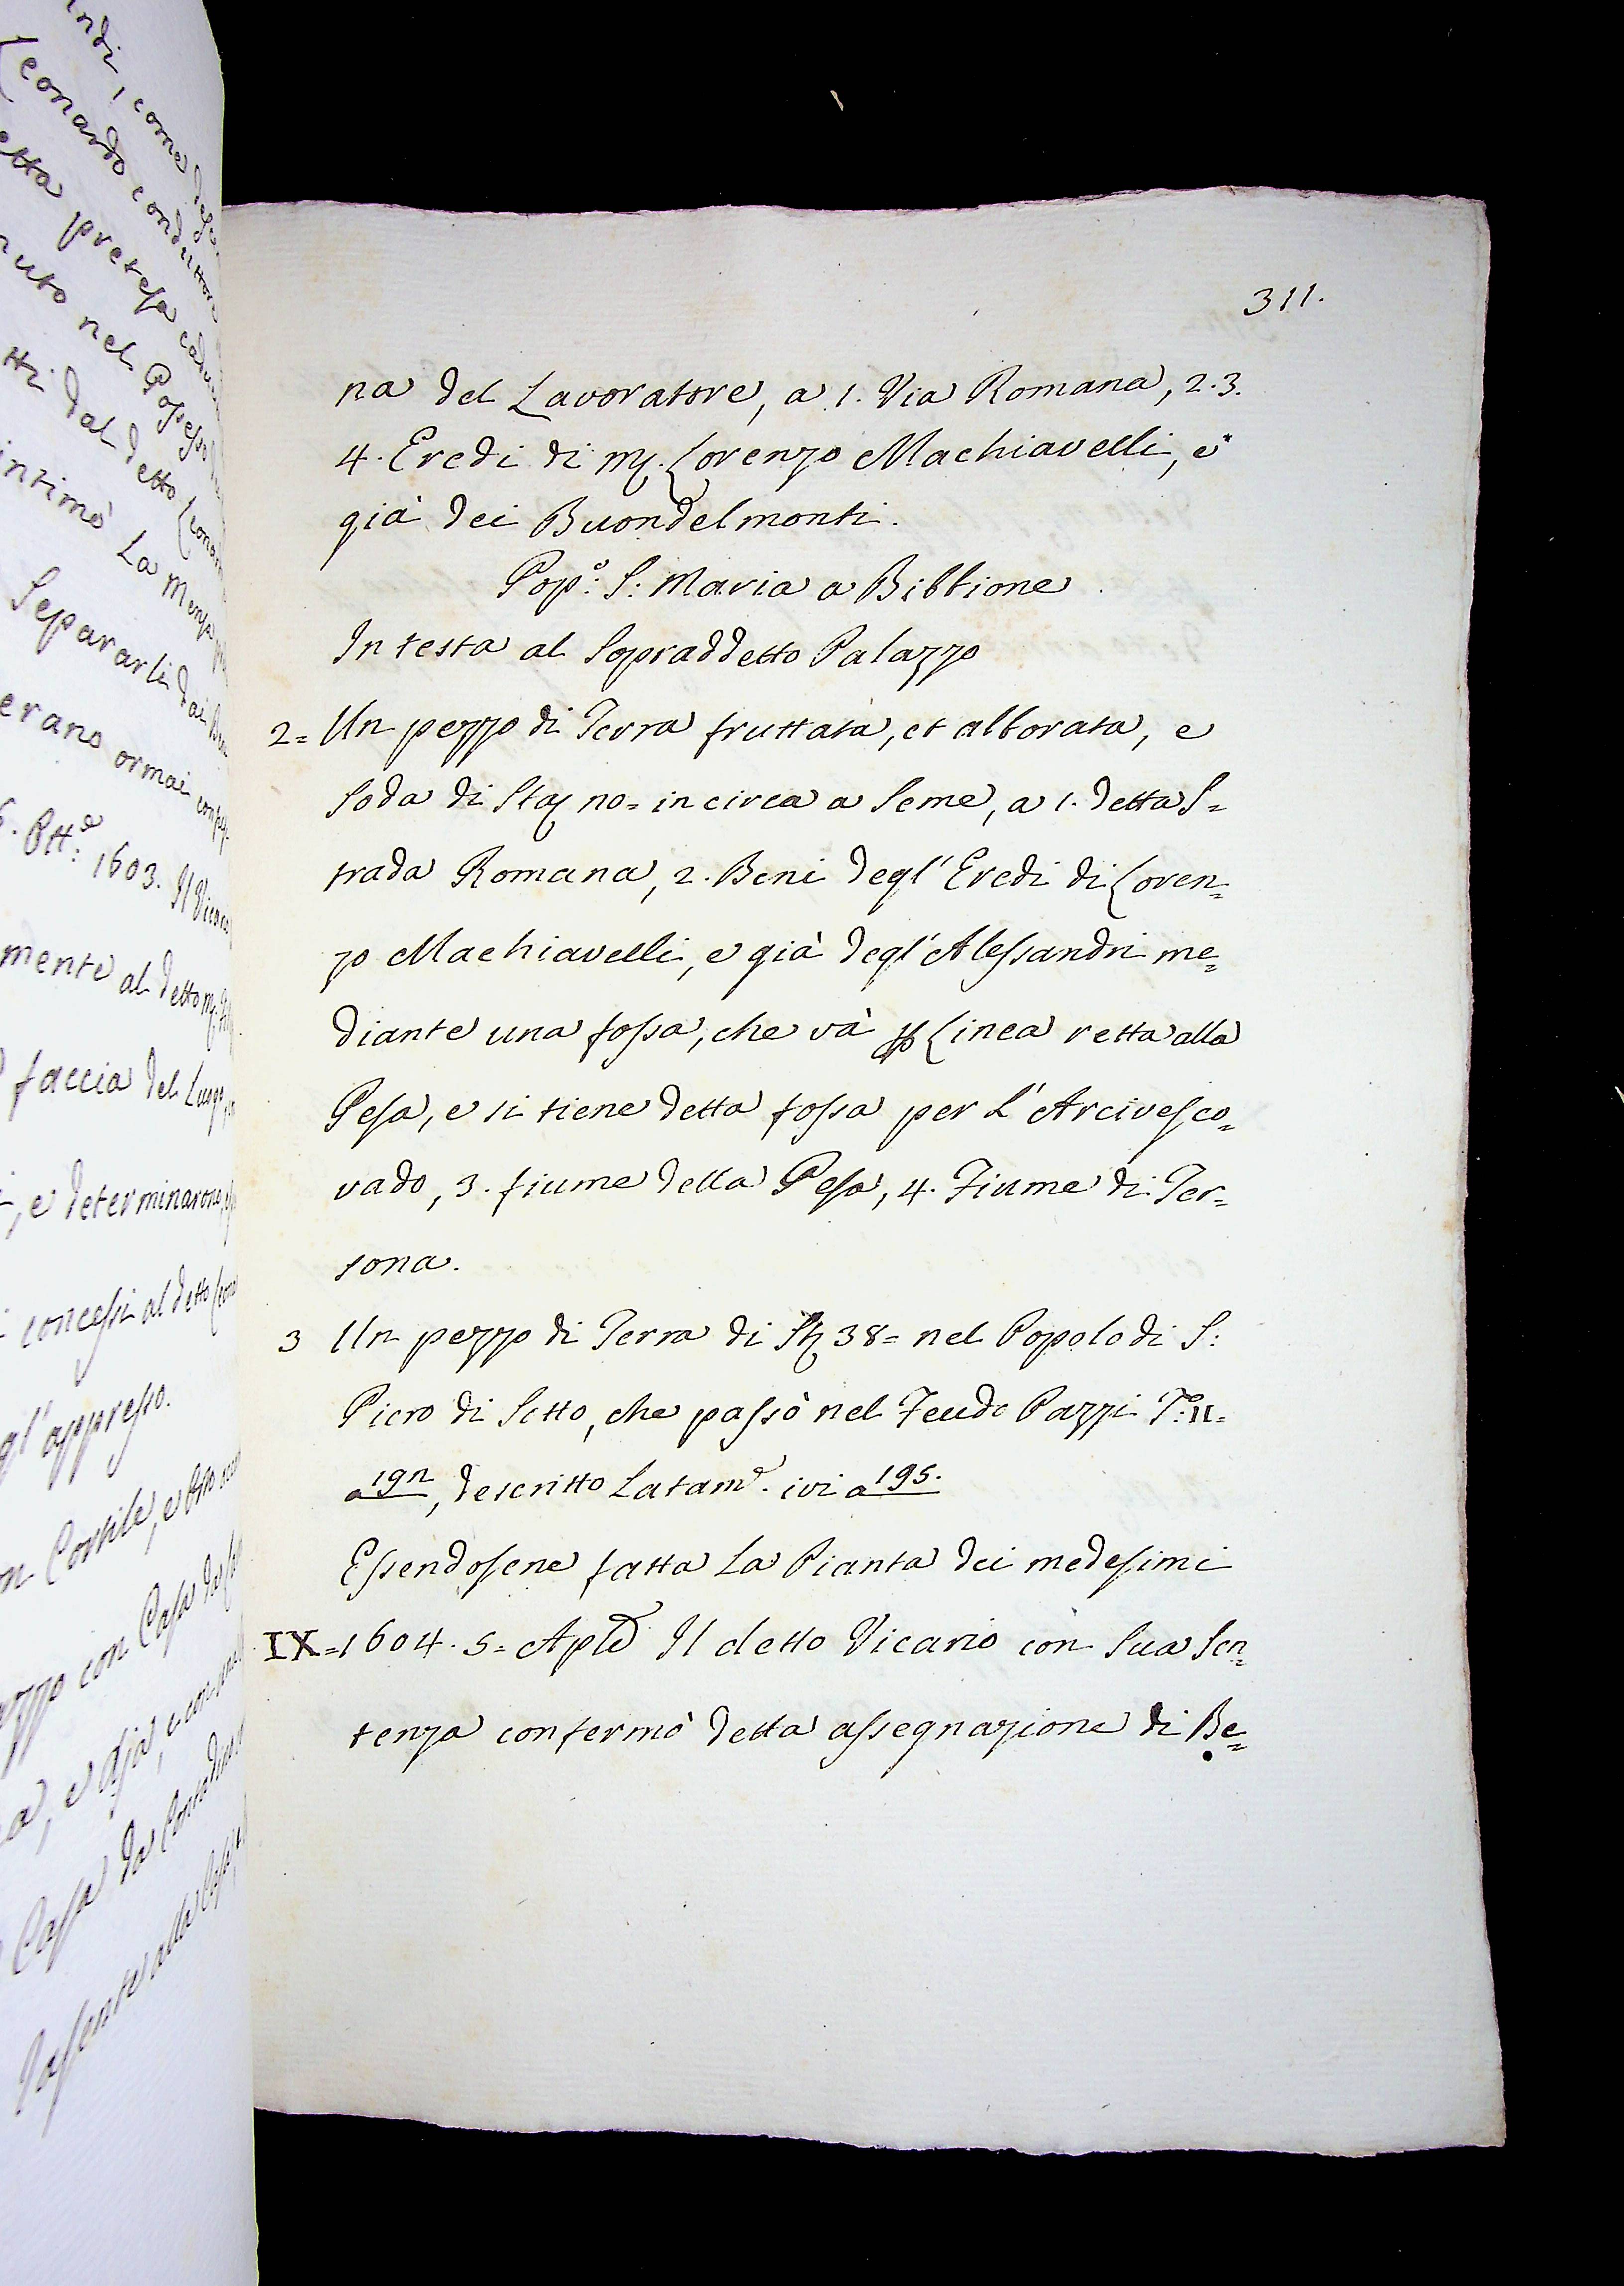 311.
na del Lavoratore, a 1. Via Romana, 2.3.
4. Eredi di M. Lorenzo Machiavelli, e
già dei Buondelmonti.
Pop.º: S: Maria a Bibbione
In testa al Sopraddetto Palazzo
2= Un pezzo di Terra fruttata, et alborata, e
soda di Sta no= in circa a Seme, a 1. detta S=
trada Romana, 2. Beni degl' Eredi di Loren=
zo Machiavelli, e già degl' Alessandri me=
diante una fossa, che và p Linea retta alla
Pesa, e si tiene detta fossa per l' Arcivesco=
vado, 3. fiume della Pesa, 4. Fiume di Ter=
zona.
3 Un pezzo di Terra di St 38= nel Popolo di S:
Piero di Sotto, che passò nel Feudo Pazzi T.º II=
a 19n, descritto Latam.e ivi a 195.
Essendosene fatta la Pianta dei medesimi
IX=1604. 5= Aple Il detto Vicario con Sua Sen=
tenza confermò detta assegnazione di Be=
Leonardo conduttore
etta pretesa
nuto nel Possesso
tti dal detto
intimò La Mensa
Separarli dai
erano ormai
1603. Il
mente al detto
faccia del Luogo
, e determinarono
concessi al detto
gl' appresso.
Cortile, e
con Casa da
Casa da
alla